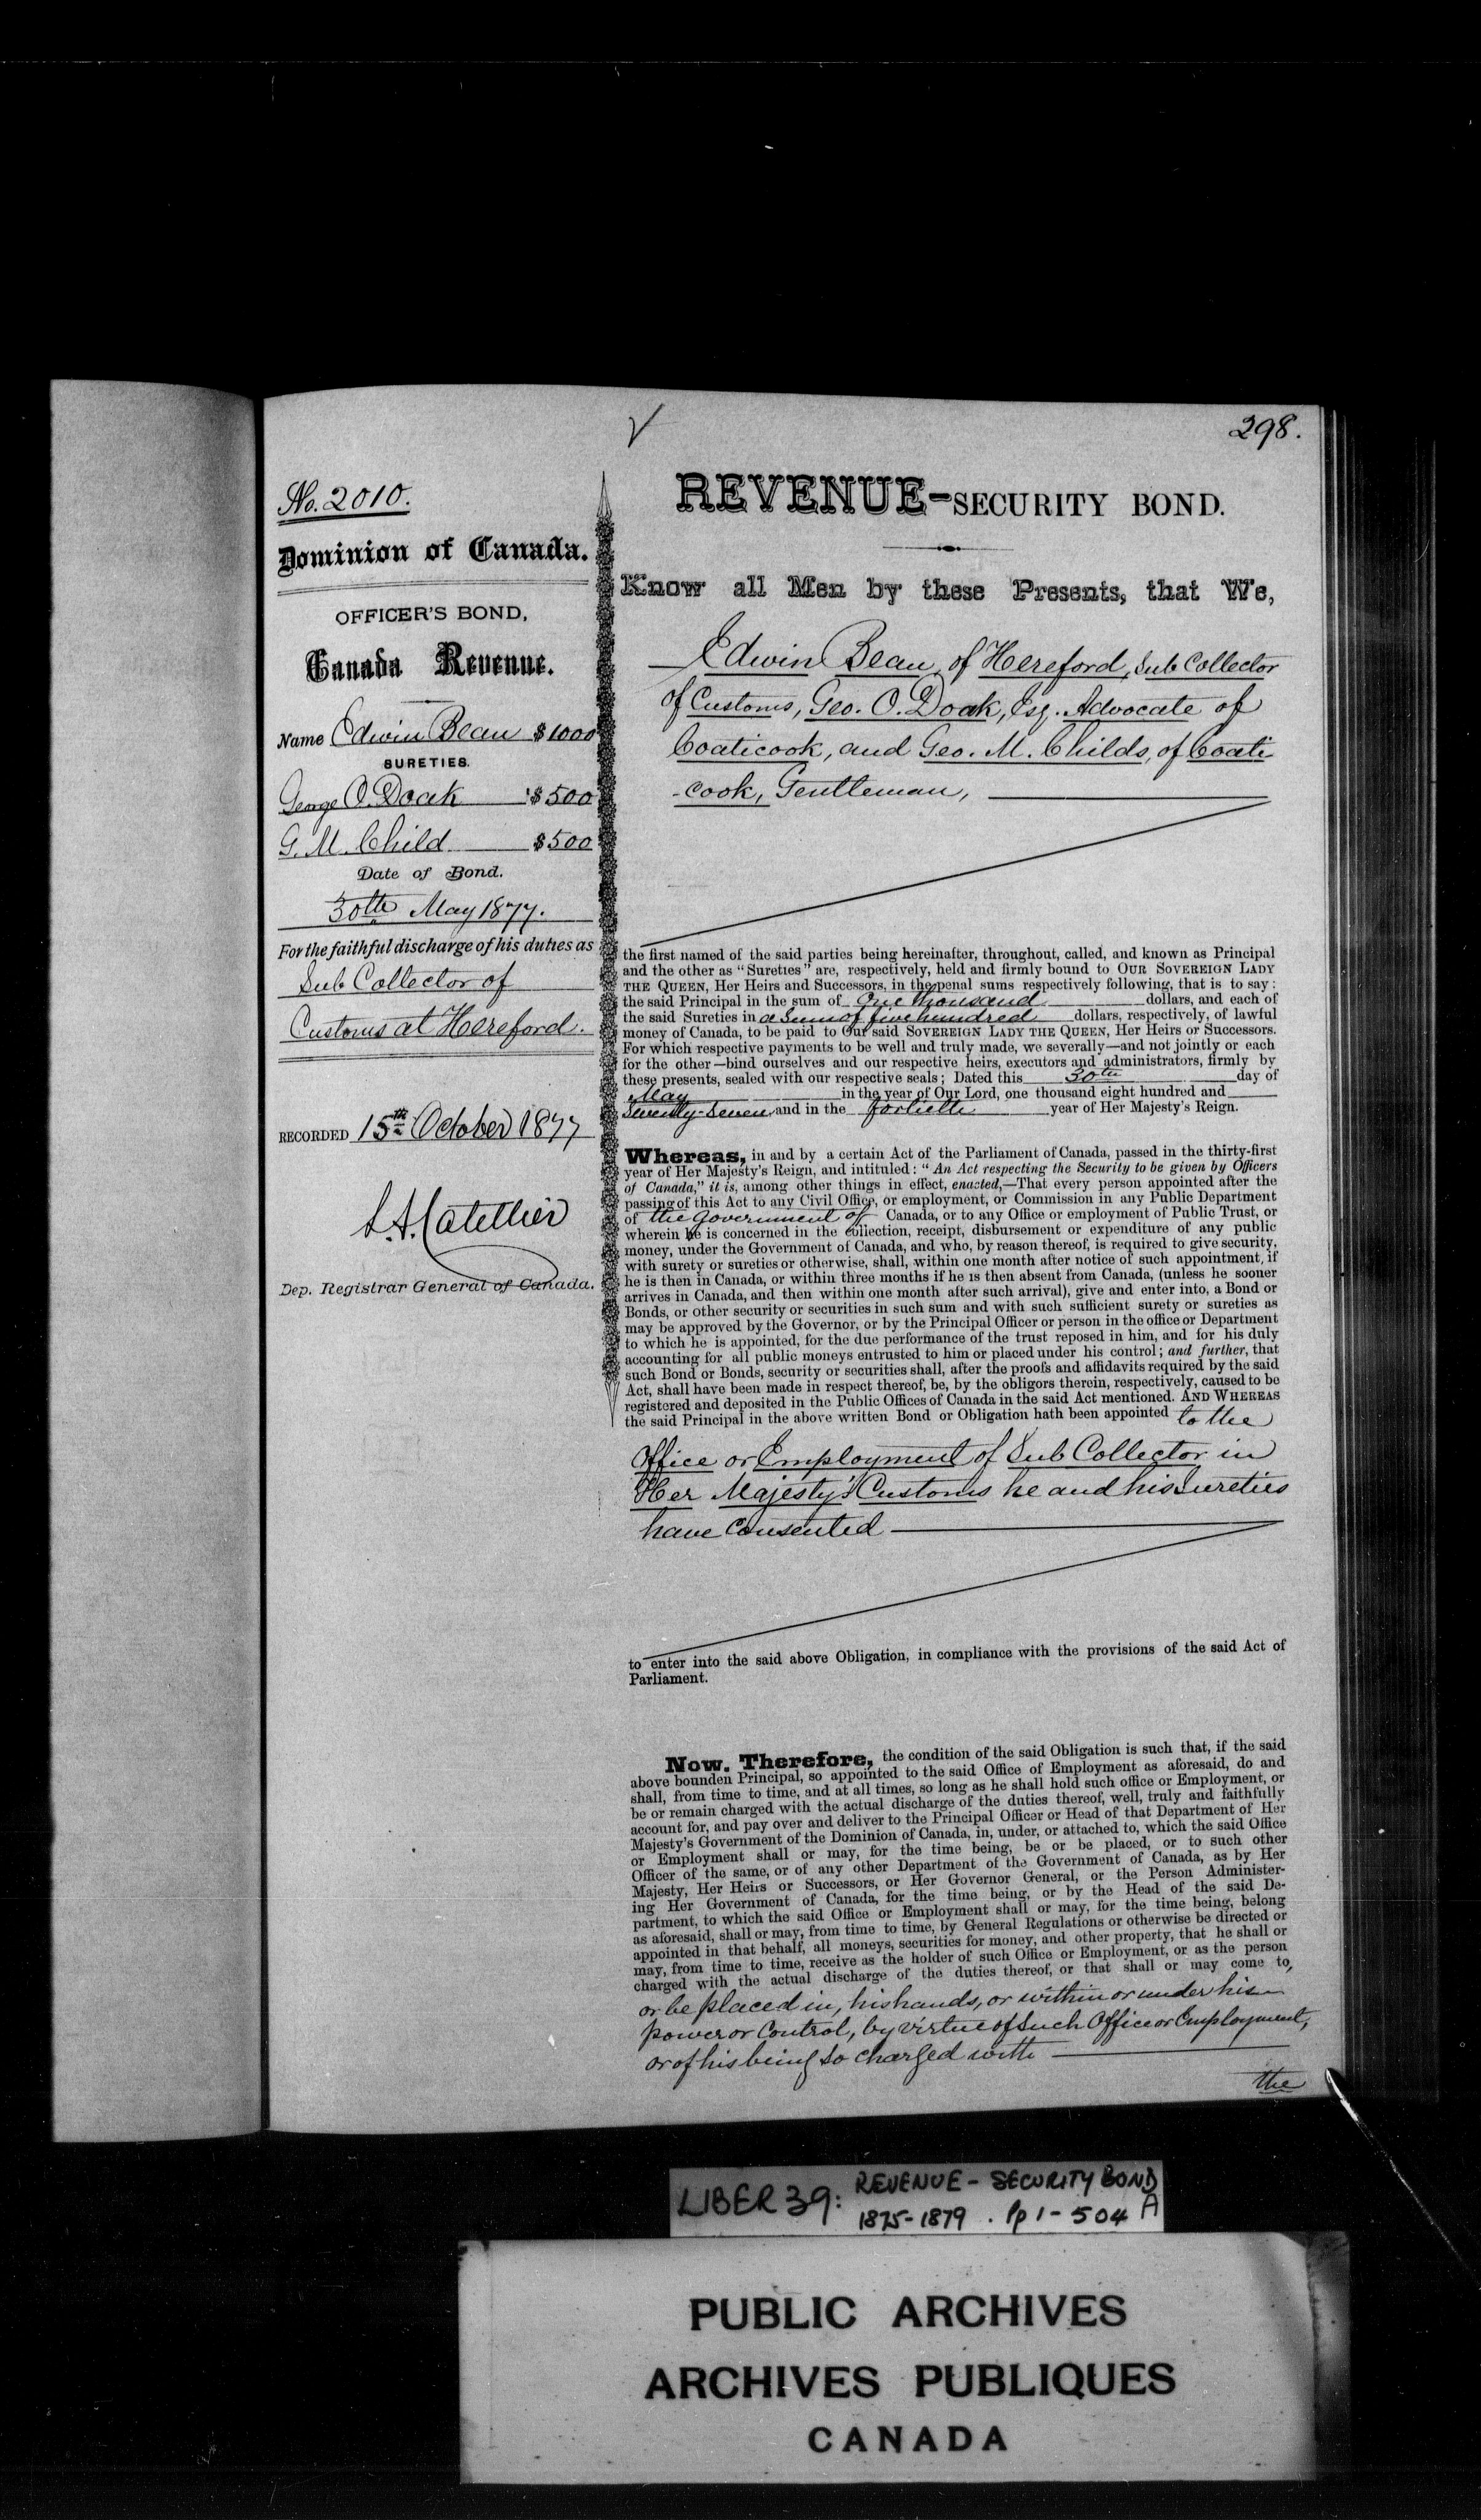 298.
No. 2010.
Dominion of Canada.
OFFICER'S BOND,
Canada Revenue.
Name Edwin Bean $1000
SURETIES.
George O. Doak $500
G. M. Child $500
Date of Bond.
30th May 1877.
For the faithful discharge of his duties as
Sub Collector of
Customs at Hereford.
RECORDED 15th October 1877
L. A. Catellier
Dep. Registrar General of Canada.
REVENUE-SECURITY BOND.
Know all Men by these Presents, that We,
Edwin Bean, of Hereford, Sub Collector
of Customs, Geo. O. Doak, Esq. Advocate of
Coaticook, and Geo. M. Childs, of Coati-
-cook, Gentleman,
the first named of the said parties being hereinafter, throughout, called, and known as Principal
and the other as "Sureties" are, respectively, held and firmly bound to OUR SOVEREIGN LADY
THE QUEEN, Her Heirs and Successors, in the penal sums respectively following, that is to say:
the said Principal in the sum of One thousand dollars, and each of
the said Sureties in a Sum of five hundred dollars, respectively, of lawful
money of Canada, to be paid to Our said SOVEREIGN LADY THE QUEEN, Her Heirs or Successors.
For which respective payments to be well and truly made, we severally—and not jointly or each
for the other—bind ourselves and our respective heirs, executors and administrators, firmly by
these presents, sealed with our respective seals; Dated this 30th day of
May in the year of Our Lord, one thousand eight hundred and
Seventy-Seven and in the fortieth year of Her Majesty's Reign.
Whereas, in and by a certain Act of the Parliament of Canada, passed in the thirty-first
year of Her Majesty's Reign, and intituled: "An Act respecting the Security to be given by Officers
of Canada," it is, among other things in effect, enacted,—That every person appointed after the
passing of this Act to any Civil Office, or employment, or Commission in any Public Department
of the Government of Canada, or to any Office or employment of Public Trust, or
wherein he is concerned in the collection, receipt, disbursement or expenditure of any public
money, under the Government of Canada, and who, by reason thereof, is required to give security,
with surety or sureties or otherwise, shall, within one month after notice of such appointment, if
he is then in Canada, or within three months if he is then absent from Canada, (unless he sooner
arrives in Canada, and then within one month after such arrival), give and enter into, a Bond or
Bonds, or other security or securities in such sum and with such sufficient surety or sureties as
may be approved by the Governor, or by the Principal Officer or person in the office or Department
to which he is appointed, for the due performance of the trust reposed in him, and for his duly
accounting for all public moneys entrusted to him or placed under his control; and further, that
such Bond or Bonds, security or securities shall, after the proofs and affidavits required by the said
Act, shall have been made in respect thereof, be, by the obligors therein, respectively, caused to be
registered and deposited in the Public Offices of Canada in the said Act mentioned. AND WHEREAS
the said Principal in the above written Bond or Obligation hath been appointed to the
Office or Employment of Sub Collector in
Her Majesty's Customs he and his Sureties
have Consented
to enter into the said above Obligation, in compliance with the provisions of the said Act of
Parliament.
Now, Therefore, the condition of the said Obligation is such that, if the said
above bounden Principal, so appointed to the said Office of Employment as aforesaid, do and
shall, from time to time, and at all times, so long as he shall hold such office or Employment, or
be or remain charged with the actual discharge of the duties thereof, well, truly and faithfully
account for, and pay over and deliver to the Principal Officer or Head of that Department of Her
Majesty's Government of the Dominion of Canada, in, under, or attached to, which the said Office
or Employment shall or may, for the time being, be or be placed, or to such other
Officer of the same, or of any other Department of the Government of Canada, as by Her
Majesty, Her Heirs or Successors, or Her Governor General, or the Person Administer-
ing Her Government of Canada, for the time being, or by the Head of the said De-
partment, to which the said Office or Employment shall or may, for the time being, belong
as aforesaid, shall or may, from time to time, by General Regulations or otherwise be directed or
appointed in that behalf, all moneys, securities for money, and other property, that he shall or
may, from time to time, receive as the holder of such Office or Employment, or as the person
charged with the actual discharge of the duties thereof, or that shall or may come to,
or be placed in, his hands, or within or under his
power or Control, by virtue of Such Office or Employment,
or of his being so charged with
the
LIBER 39: REVENUE - SECURITY BOND
1875-1879. Pp 1-504 A
PUBLIC ARCHIVES
ARCHIVES PUBLIQUES
CANADA